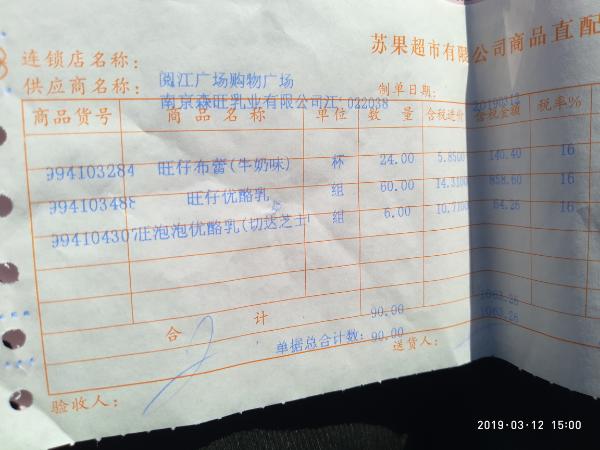 苏果超市有限公司商品直配
连锁店名称： 阅江广场购物广场
供应商名称： 南京森旺乳业有限公司江:022038 制单日期： 20190312
商品货号 商品名称 单位 数量 含税进价 含税金额 税率%
994103284 旺仔布蕾(牛奶味) 杯 24.00 5.8500 140.40 16
994103488 旺仔优酪乳 组 60.00 14.3100 858.60 16
994104307 旺泡泡优酪乳(切达芝士 组 6.00 10.7100 64.26 16
合计 90.00 1063.26
单据总合计数: 90.00 1063.26
验收人： 送货人：
2019·03·12 15:00